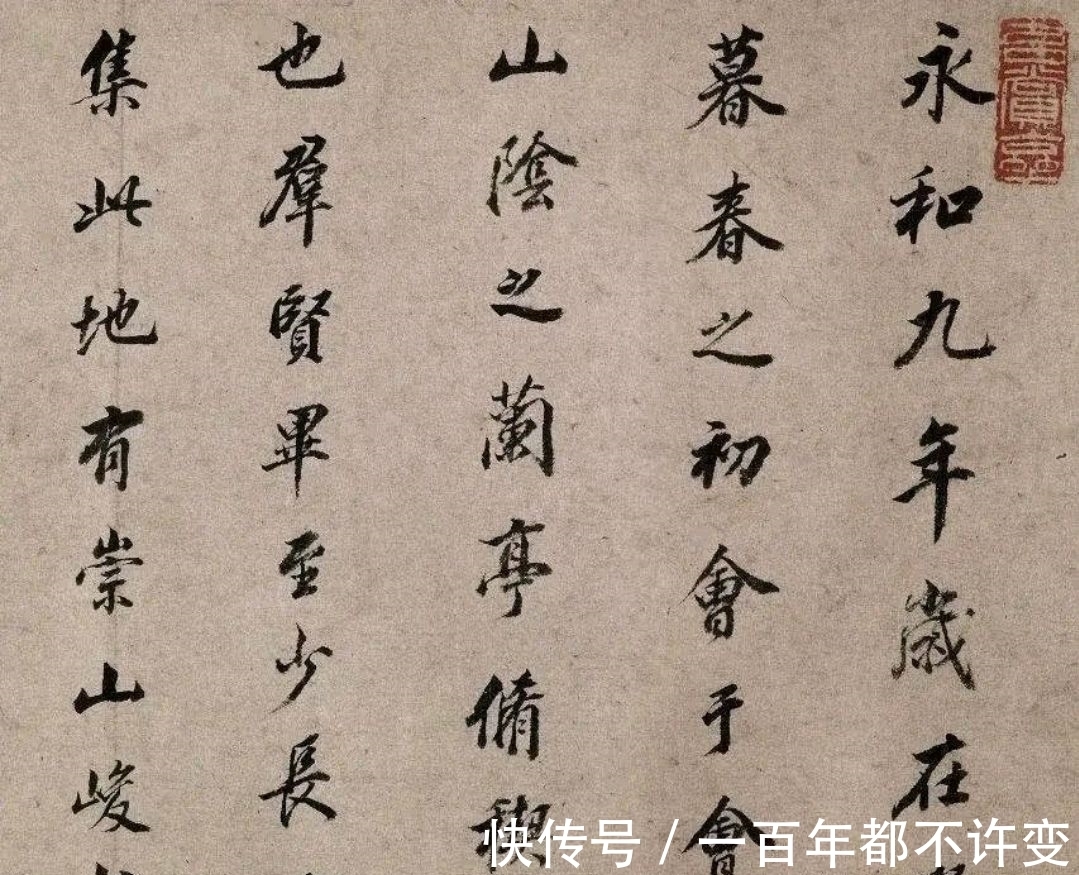 永和九年歲在
暮春之初會于會
山陰之蘭亭脩禊
也羣賢畢至少長
集此地有崇山峻
快传号 / 一百年都不许变